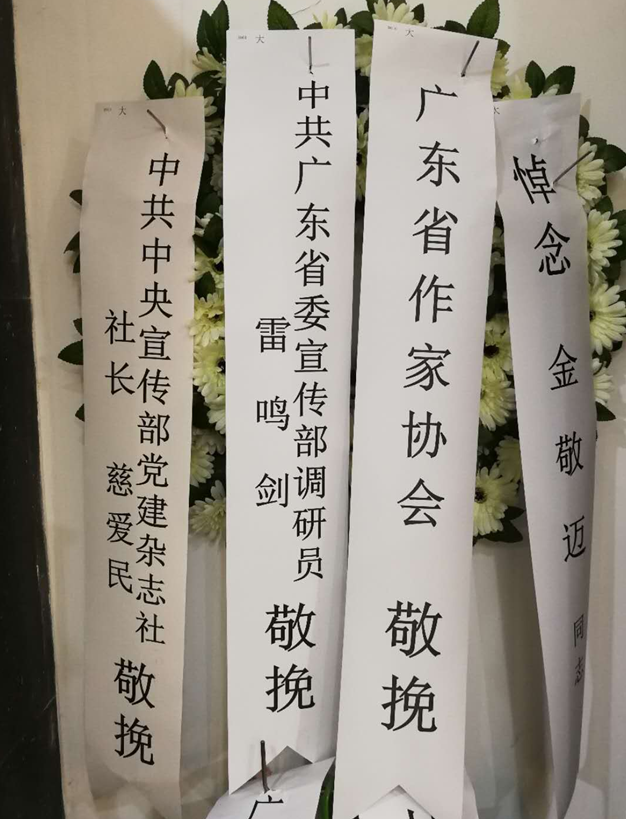 悼念 金敬迈 同志
广东省作家协会
敬挽
中共广东省委宣传部调研员
雷鸣剑
敬挽
中共中央宣传部党建杂志社
社长 慈爱民
敬挽
大
大
大
广